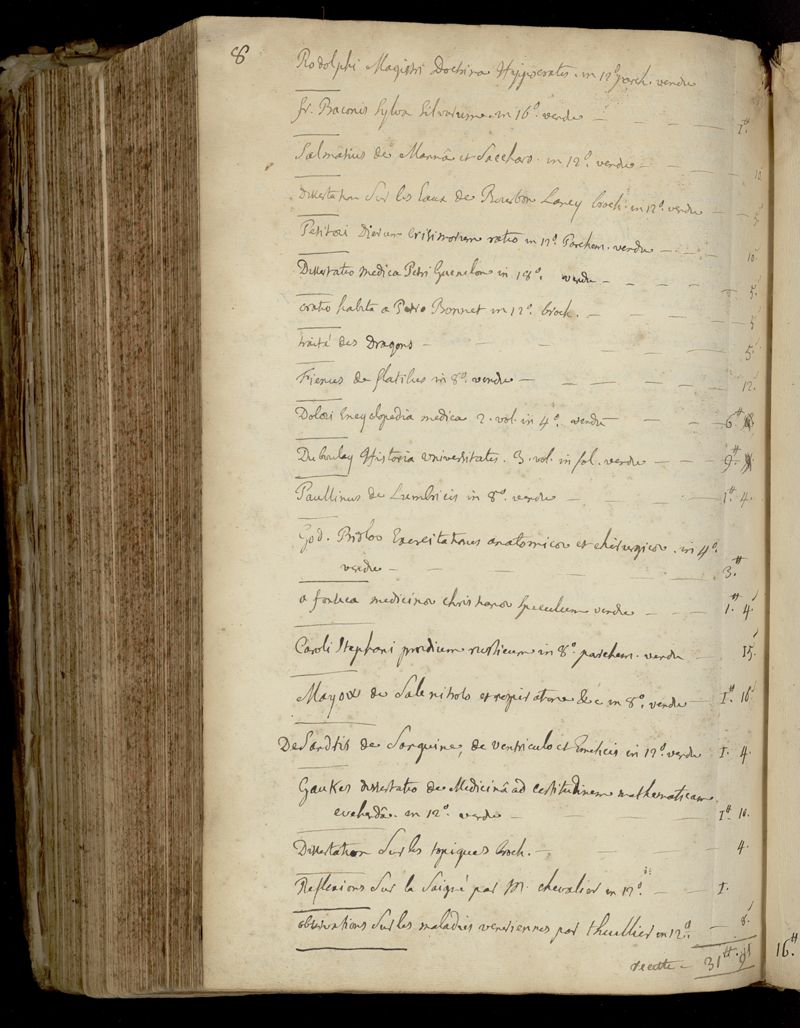 8
Rodolphi Magistri Doctrina Hyppocratis. in 12º parch. vendu
fr. Baconis Sylva Silvarum. in 16º. vendu — — — 1.ᵗᵗ
Salmatius de Mannâ et Saccharo. in 12º. vendu — — — 10
Dissertation Sur les Eaux de Bourbon Lancy broch. in 12º. vendu — — 5
Petiti Dierum Crisimorum ratio in 12º. Parchem. vendu — — — 10
Dissertatio Medica Petri Guenelon in 18º. vendu — — — 5
oratio habita a Petro Bonnet in 12º. broch. — — — 5
traité des Dragons — — — 5
Fienus de flatibus in 8º. vendu — — — 12.
Dolæi Encyclopedia medica 2. vol. in 4º. vendu — — — 6ᵗᵗ
Duboulay Historia Universitatis. 3. vol. in fol. vendu — — 9ᵗᵗ
Paullinus de Lumbricis in 8º. vendu — — — 1ᵗᵗ. 4.
God. Bidloo Exercitationes anatomicæ et chirurgicæ. in 4º.
vendu — — — 3.ᵗᵗ
a fonteca medicinæ christianæ Speculum vendu — — 1.ᵗᵗ 4
Caroli Stephani prædium rusticum in 8º. parchem. vendu — 15
Mayow de Sale nitro et respiratione &c in 8º. vendu — 1ᵗᵗ 16
De Sanguine, de ventriculo et Emeticis in 12º. vendu 1. 4.
Gaukes dissertatio de Medicinâ ad certitudinem mathematicam
evehendâ. in 12º. vendu — — — 1ᵗᵗ. 10.
Dissertation Sur les topiques broch. — — — 4.
Reflexions Sur la Saignée par M. chevalier in 12º. — — 1.
observations Sur les maladies veneriennes par thuillier in 12º. — 8.
recette — 31ᵗᵗ. 9ˢ
16ᵗᵗ